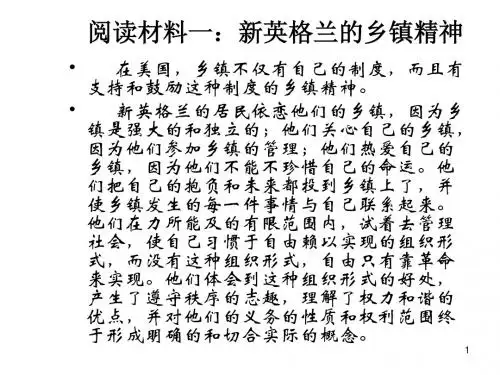 阅读材料一：新英格兰的乡镇精神
• 在美国，乡镇不仅有自己的制度，而且有
支持和鼓励这种制度的乡镇精神。
• 新英格兰的居民依恋他们的乡镇，因为乡
镇是强大的和独立的；他们关心自己的乡镇，
因为他们参加乡镇的管理；他们热爱自己的
乡镇，因为他们不能不珍惜自己的命运。他
们把自己的抱负和未来都投到乡镇上了，并
使乡镇发生的每一件事情与自己联系起来。
他们在力所能及的有限范围内，试着去管理
社会，使自己习惯于自由赖以实现的组织形
式，而没有这种组织形式，自由只有靠革命
来实现。他们体会到这种组织形式的好处，
产生了遵守秩序的志趣，理解了权力和谐的
优点，并对他们的义务的性质和权利范围终
于形成明确的和切合实际的概念。
1